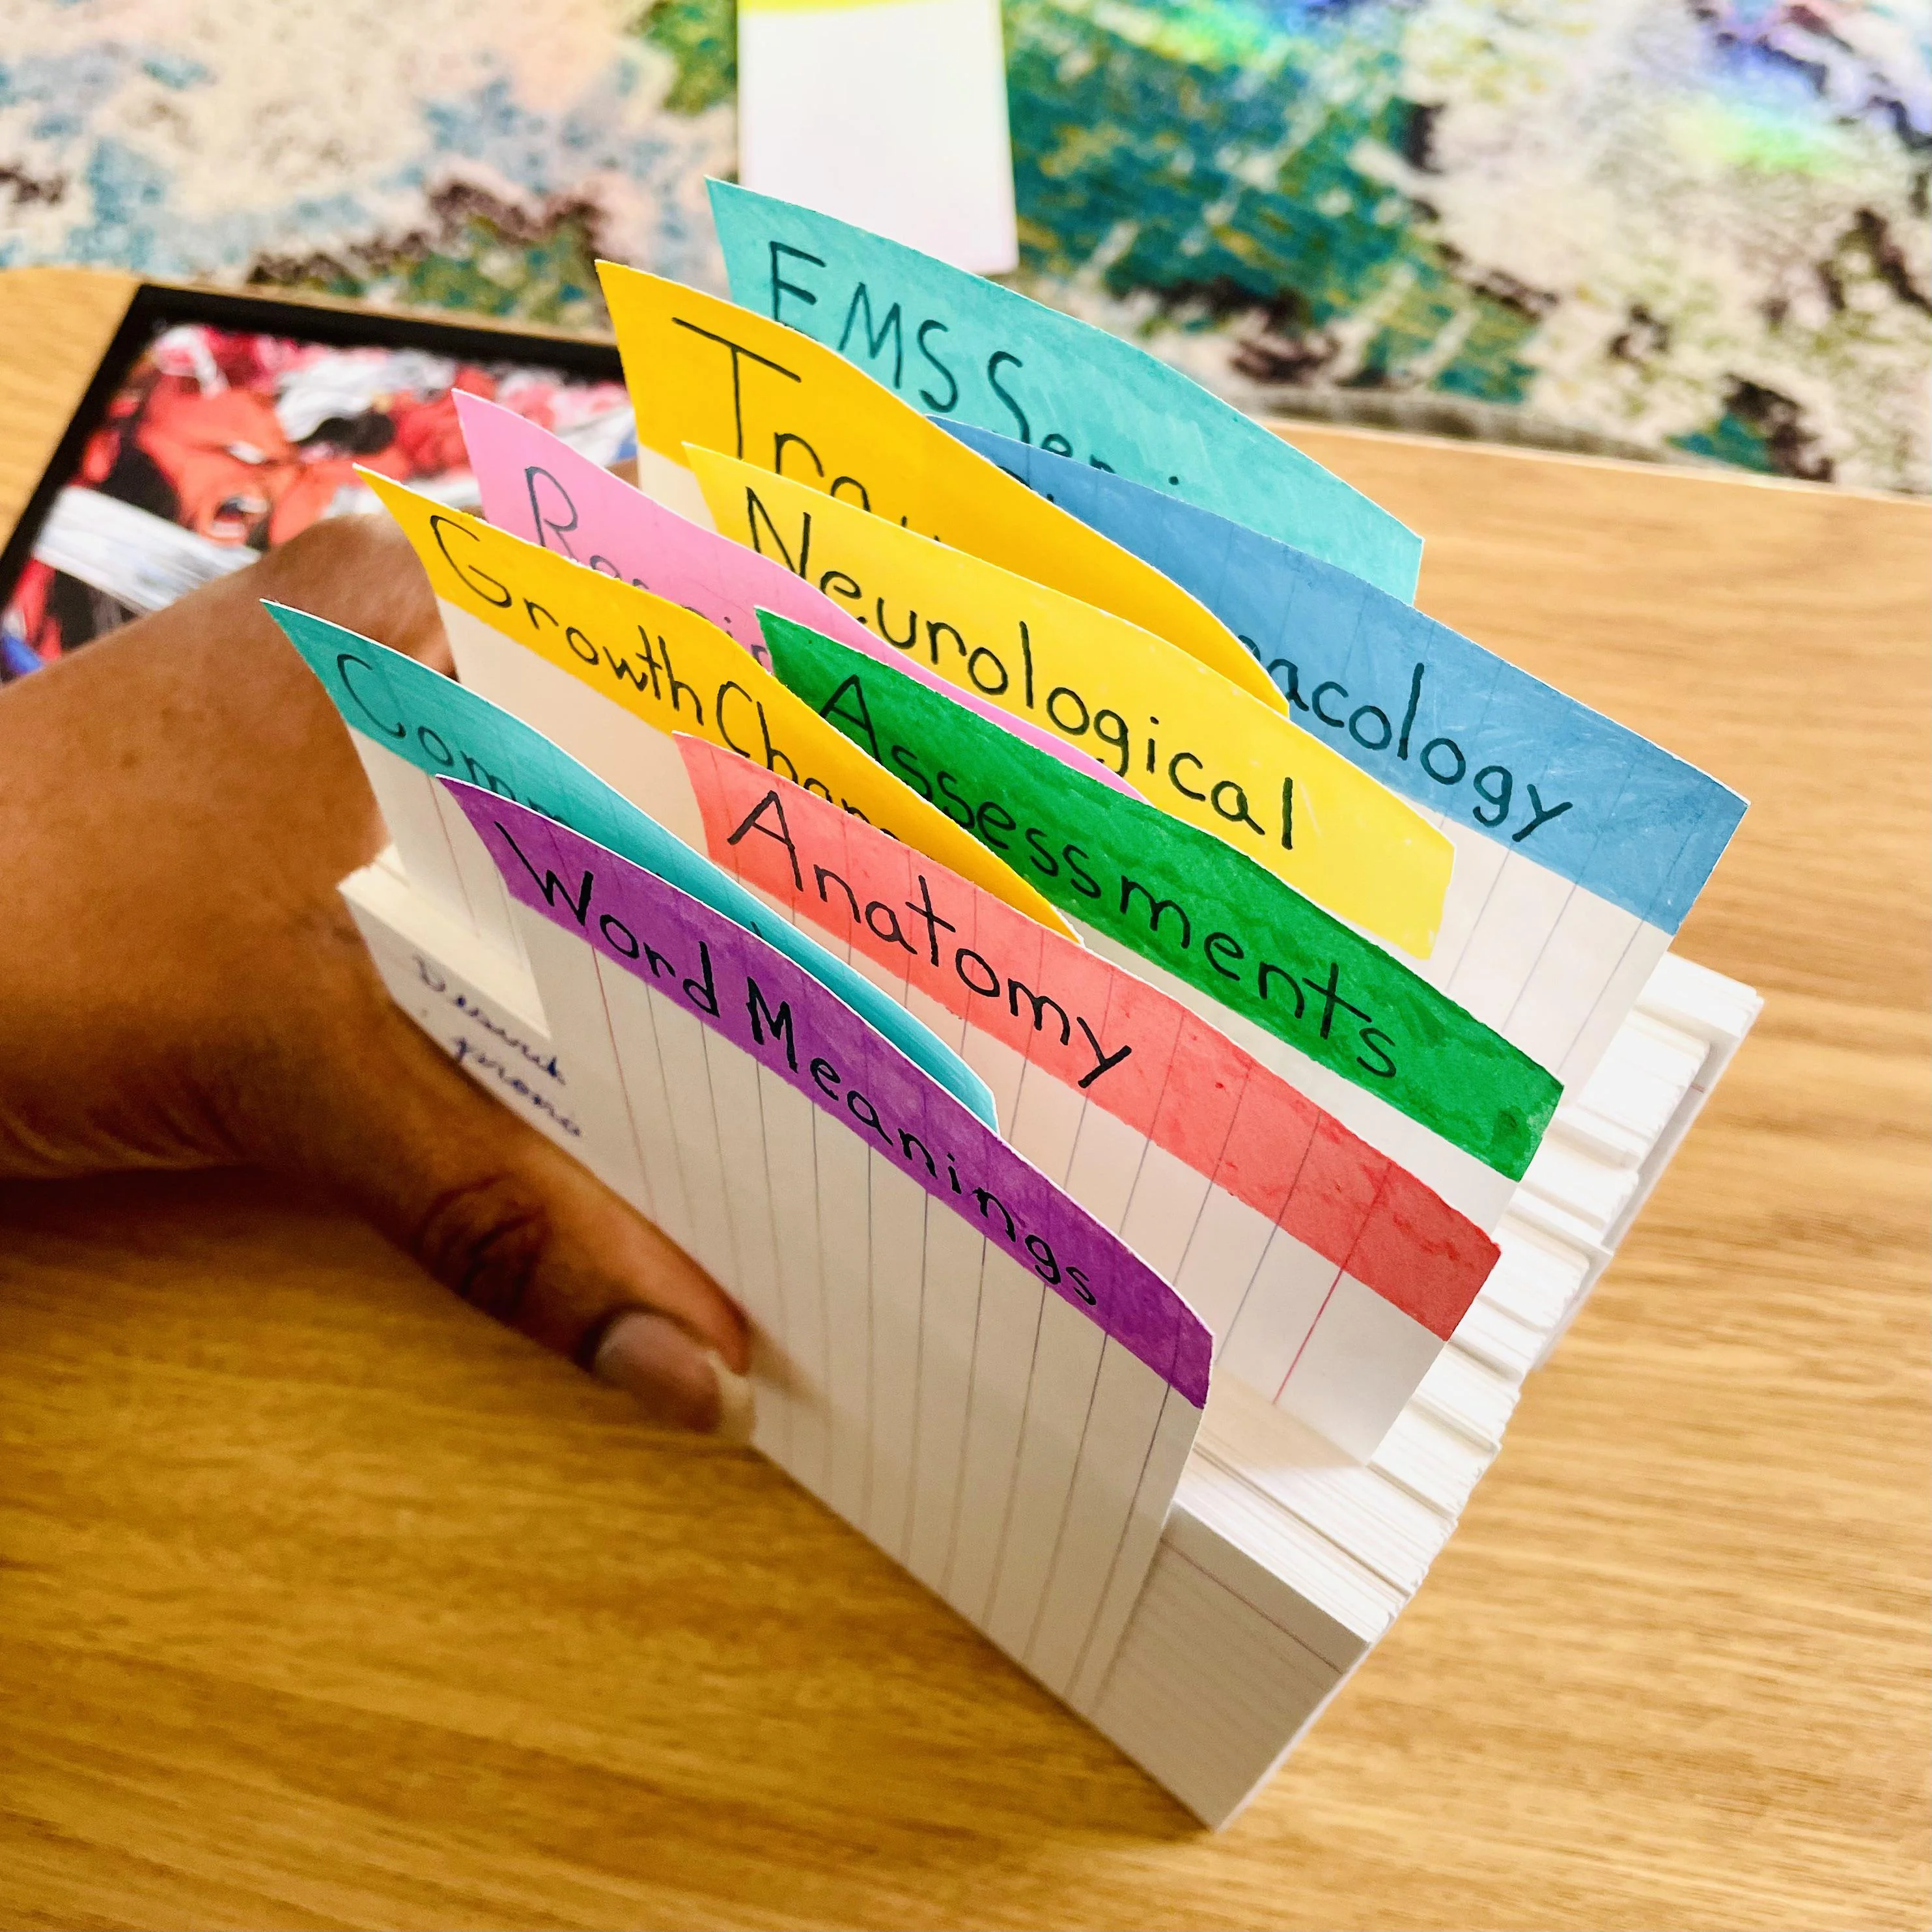 EMS Ser
Tra
acology
Neurological
Growth Chan
Assessments
Com
Anatomy
Word Meanings